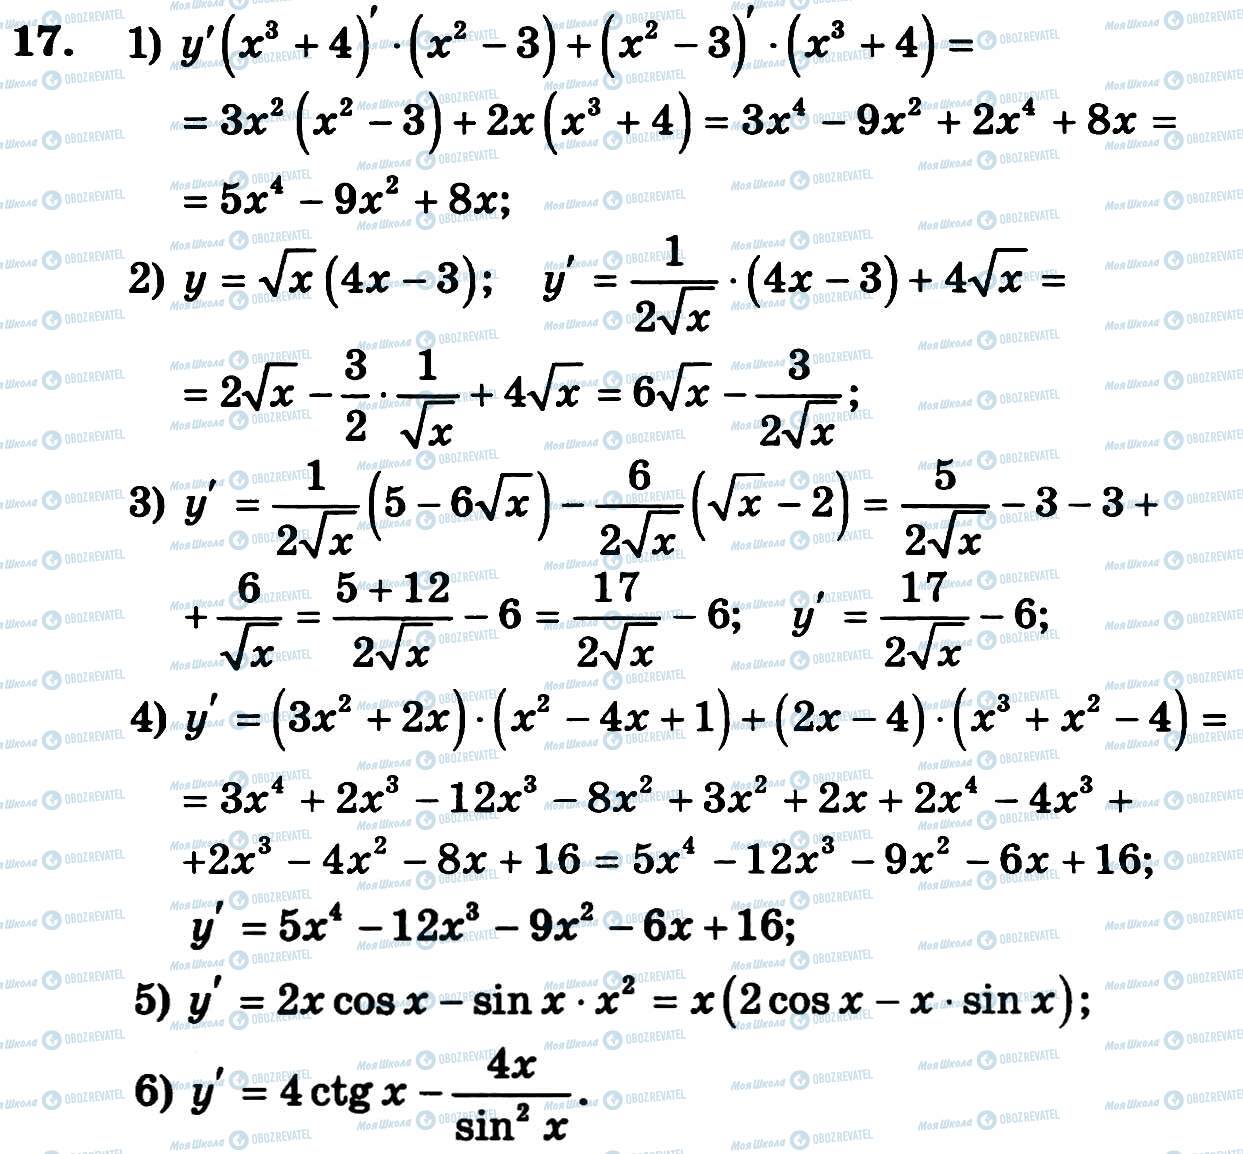 17. 1) y'(x³ + 4)' · (x² − 3) + (x² − 3)' · (x³ + 4) =
= 3x² (x² − 3) + 2x (x³ + 4) = 3x⁴ − 9x² + 2x⁴ + 8x =
= 5x⁴ − 9x² + 8x;
2) y = √x (4x − 3); y' = 1/(2√x) · (4x − 3) + 4√x =
= 2√x − 3/2 · 1/√x + 4√x = 6√x − 3/(2√x);
3) y' = 1/(2√x) (5 − 6√x) − 6/(2√x) (√x − 2) = 5/(2√x) − 3 − 3 +
+ 6/√x = (5 + 12)/(2√x) − 6 = 17/(2√x) − 6; y' = 17/(2√x) − 6;
4) y' = (3x² + 2x) · (x² − 4x + 1) + (2x − 4) · (x³ + x² − 4) =
= 3x⁴ + 2x³ − 12x³ − 8x² + 3x² + 2x + 2x⁴ − 4x³ +
+2x³ − 4x² − 8x + 16 = 5x⁴ − 12x³ − 9x² − 6x + 16;
y' = 5x⁴ − 12x³ − 9x² − 6x + 16;
5) y' = 2x cos x − sin x · x² = x(2 cos x − x · sin x);
6) y' = 4 ctg x − 4x/sin² x.
Моя Школа OBOZREVATEL